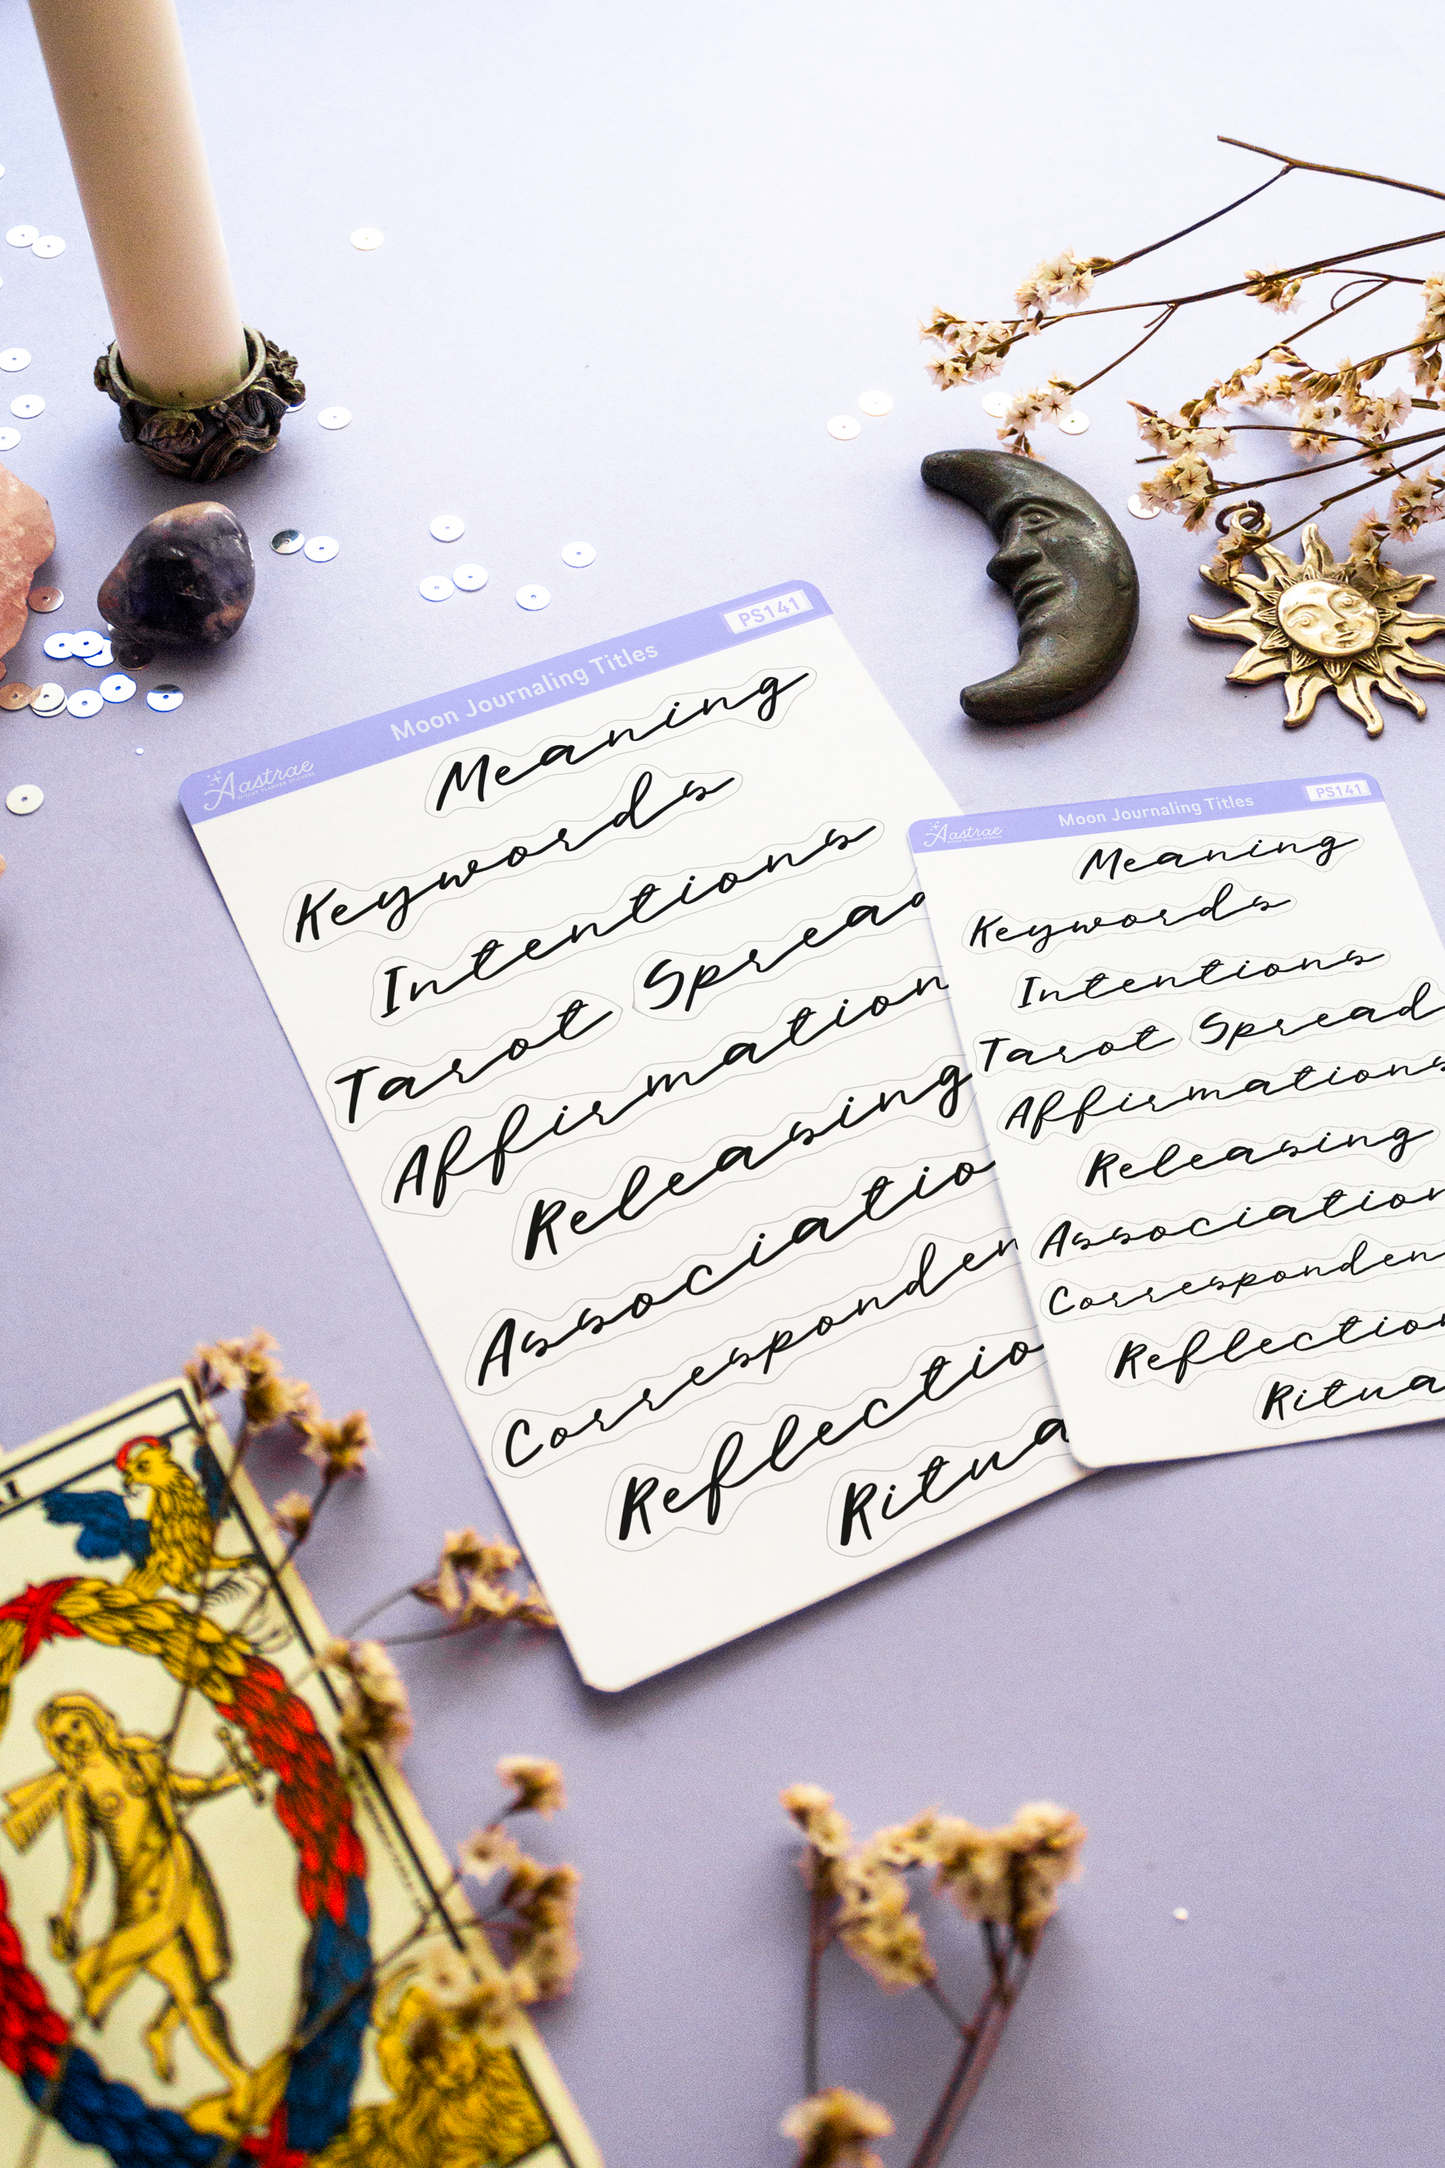 Moon Journaling Titles
PS141
Aastrae
WITCHY PLANNER STICKERS
Meaning
Keywords
Intentions
Tarot Spread
Affirmation
Releasing
Associatio
Corresponden
Reflectio
Ritua
Moon Journaling Titles
PS141
Aastrae
Meaning
Keywords
Intentions
Tarot Spread
Affirmations
Releasing
Association
Corresponden
Reflection
Ritua